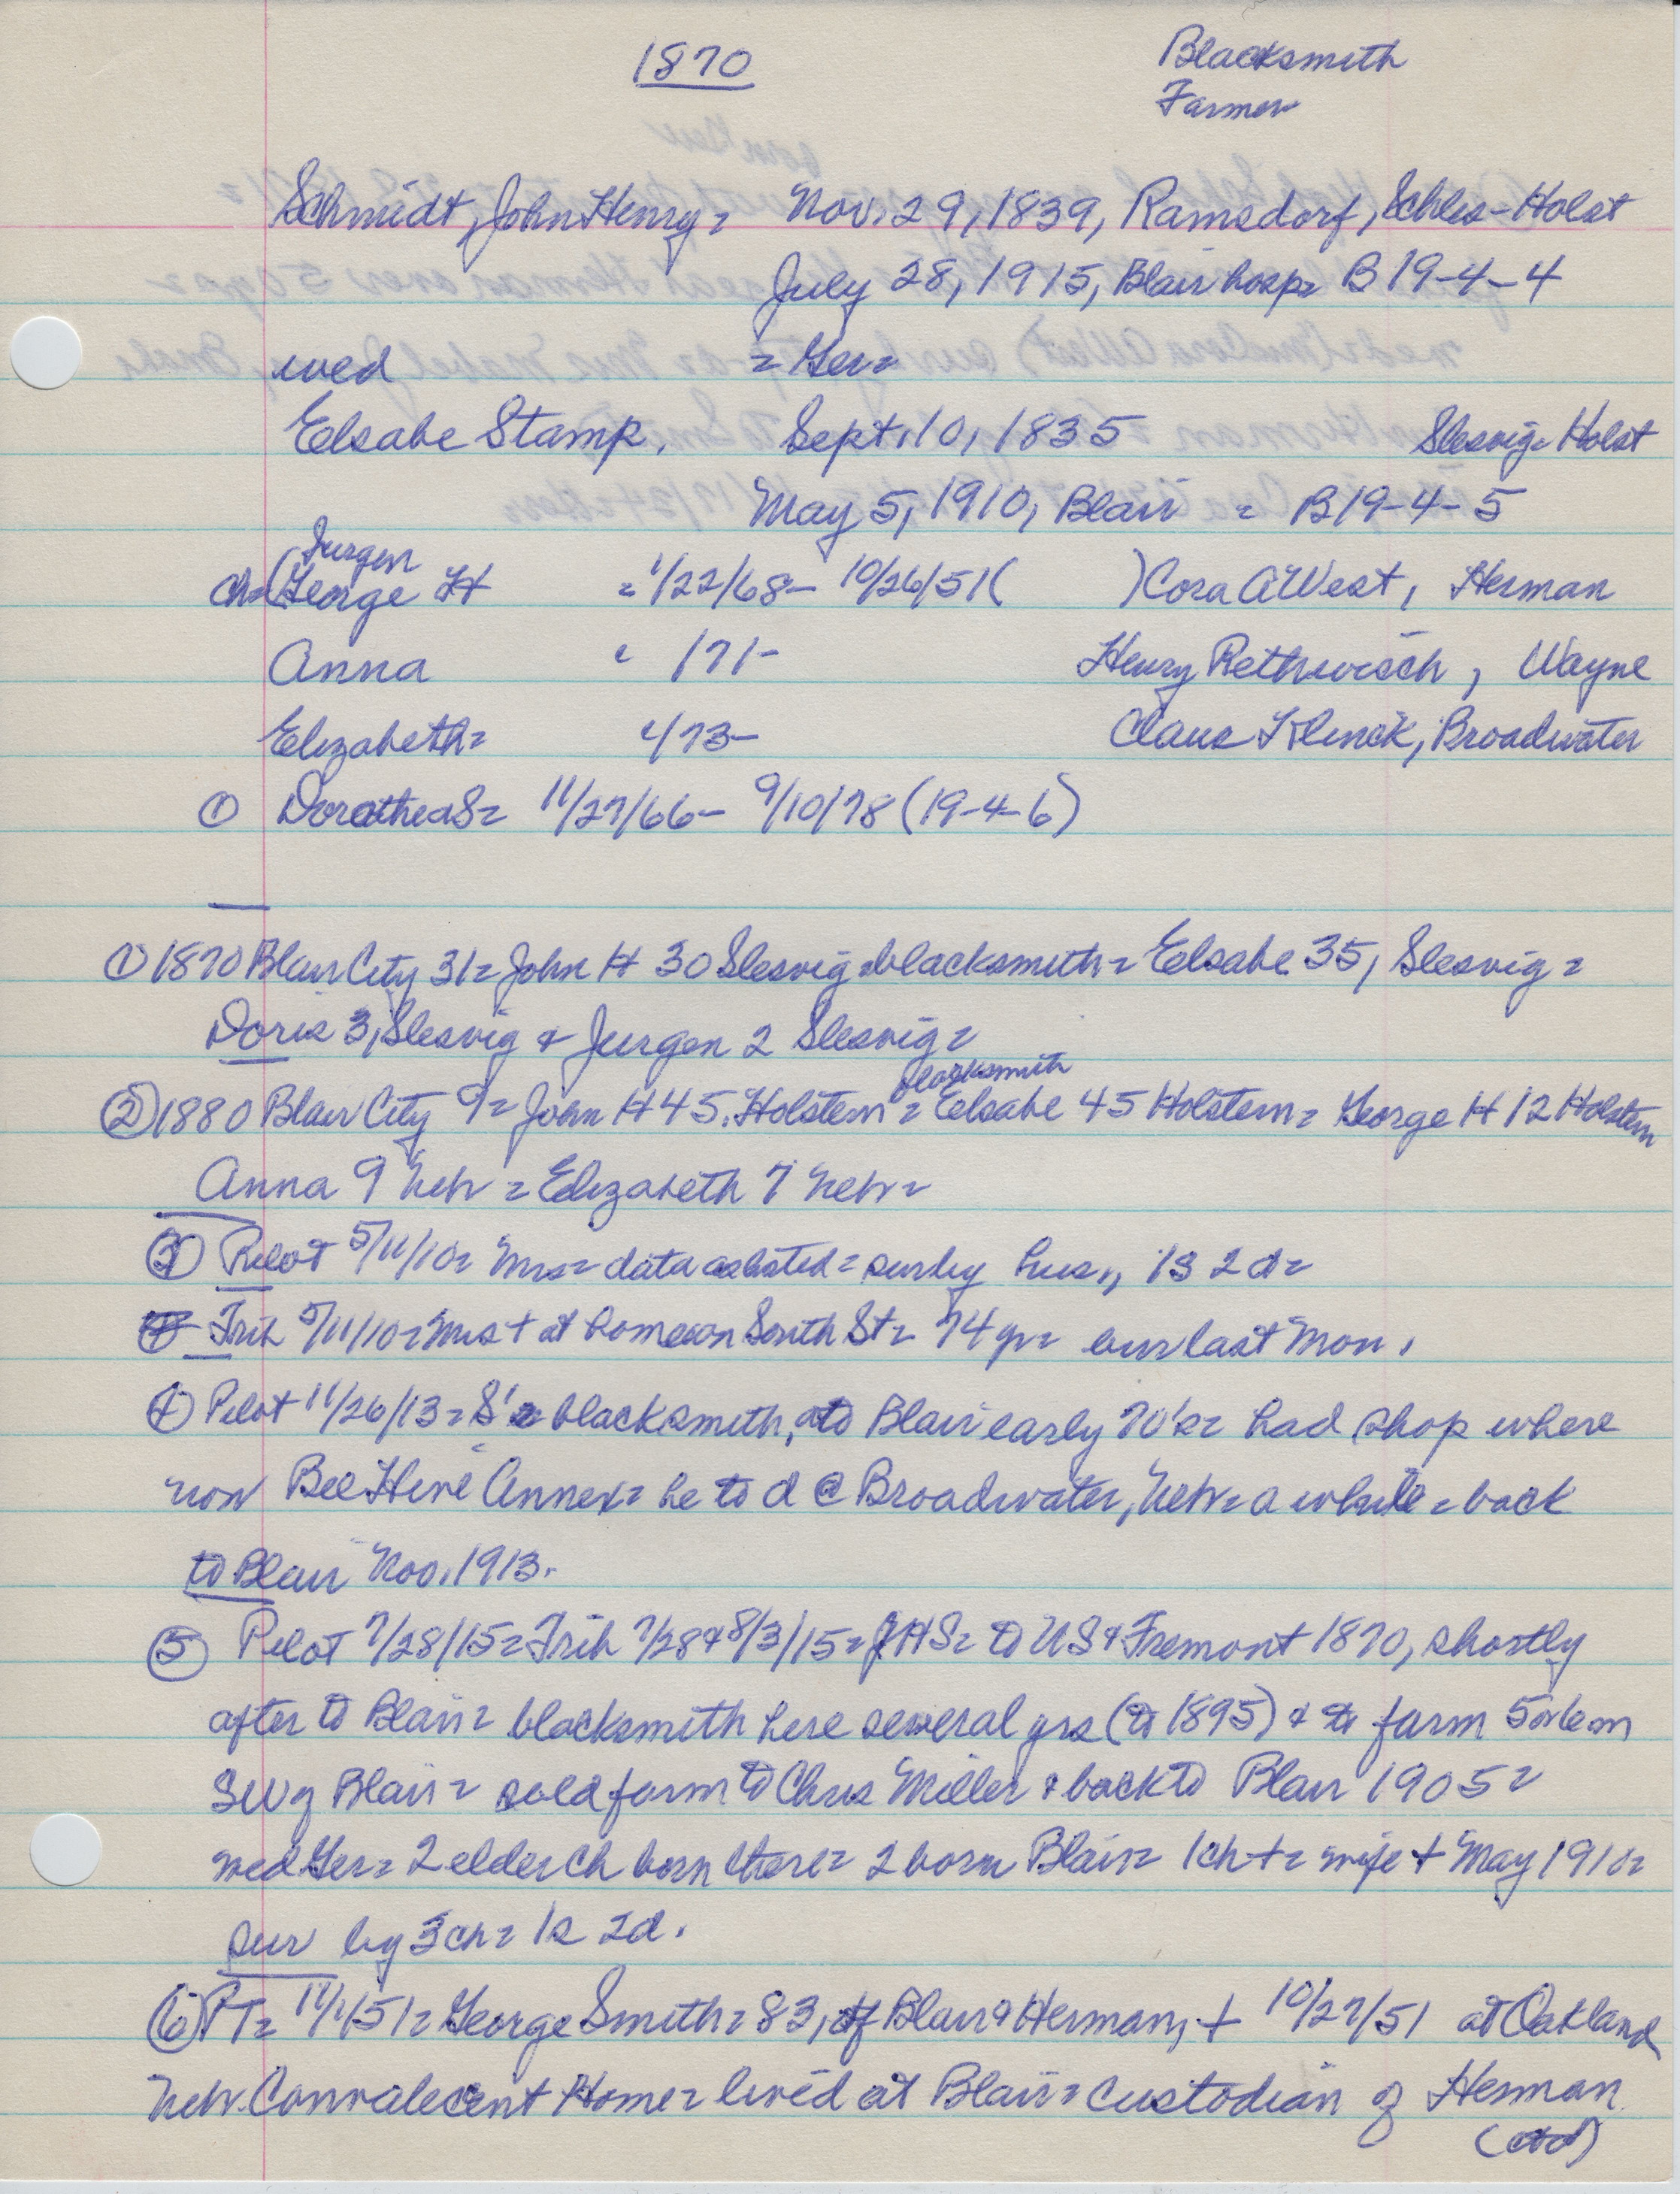 1870
Blacksmith
Farmer
Schmidt, John Henry = Nov. 29, 1839, Ramsdorf, Schles-Holst
July 28, 1915, Blair hosp = B 19-4-4
wed = Ger =
Eelsabe Stamp. Sept. 10, 1835 Slesvig-Holst
May 5, 1910, Blair = B19-4-5
Jurgen
ch= (George H = 1/22/68- 10/26/51 ( ) Cora A West, Herman
Anna = /71- Henry Rethwisch, Wayne
Elizabeth = /73- Claus Klinck, Broadwater
① Dorothea S = 11/27/66- 9/10/78 (19-4-6)
① 1870 Blair City 31 = John H 30 Slesvig = blacksmith = Eelsabe 35, Slesvig =
Doris 3, Slesvig & Jurgen 2 Slesvig =
blacksmith
② 1880 Blair City 9 = John H 45. Holstein = Eelsabe 45 Holstein = George H 12 Holstein
Anna 9 Neb = Elizabeth 7 Neb =
③ Pilot 5/11/10 = Mrs = data as listed = sur by hus., 1s 2d =
Trib 5/11/10 = Mrs + at home on South St = 74 yr = bur last Mon.
④ Pilot 11/26/13 = S' = blacksmith, to Blair early 70's = had shop where
now Bee Hive Annex = he to d @ Broadwater, Neb = a while = back
to Blair Nov. 1913.
⑤ Pilot 7/28/15 = Trib 7/28 & 8/3/15 = JHS = to US & Fremont 1870, shortly
after to Blair = blacksmith here several yrs (to 1895) & to farm 5 or 6 m
SW of Blair = sold farm to Chris Miller & back to Blair 1905 =
wed Ger = 2 elder ch born there = 2 born Blair = 1 ch + = wife + May 1910 =
sur by 3 ch = 1s 2d.
⑥ PT = 11/1/51 = George Smith = 83, of Blair & Herman, + 10/27/51 at Oakland
Neb. Convalecent Home = lived at Blair = custodian of Herman